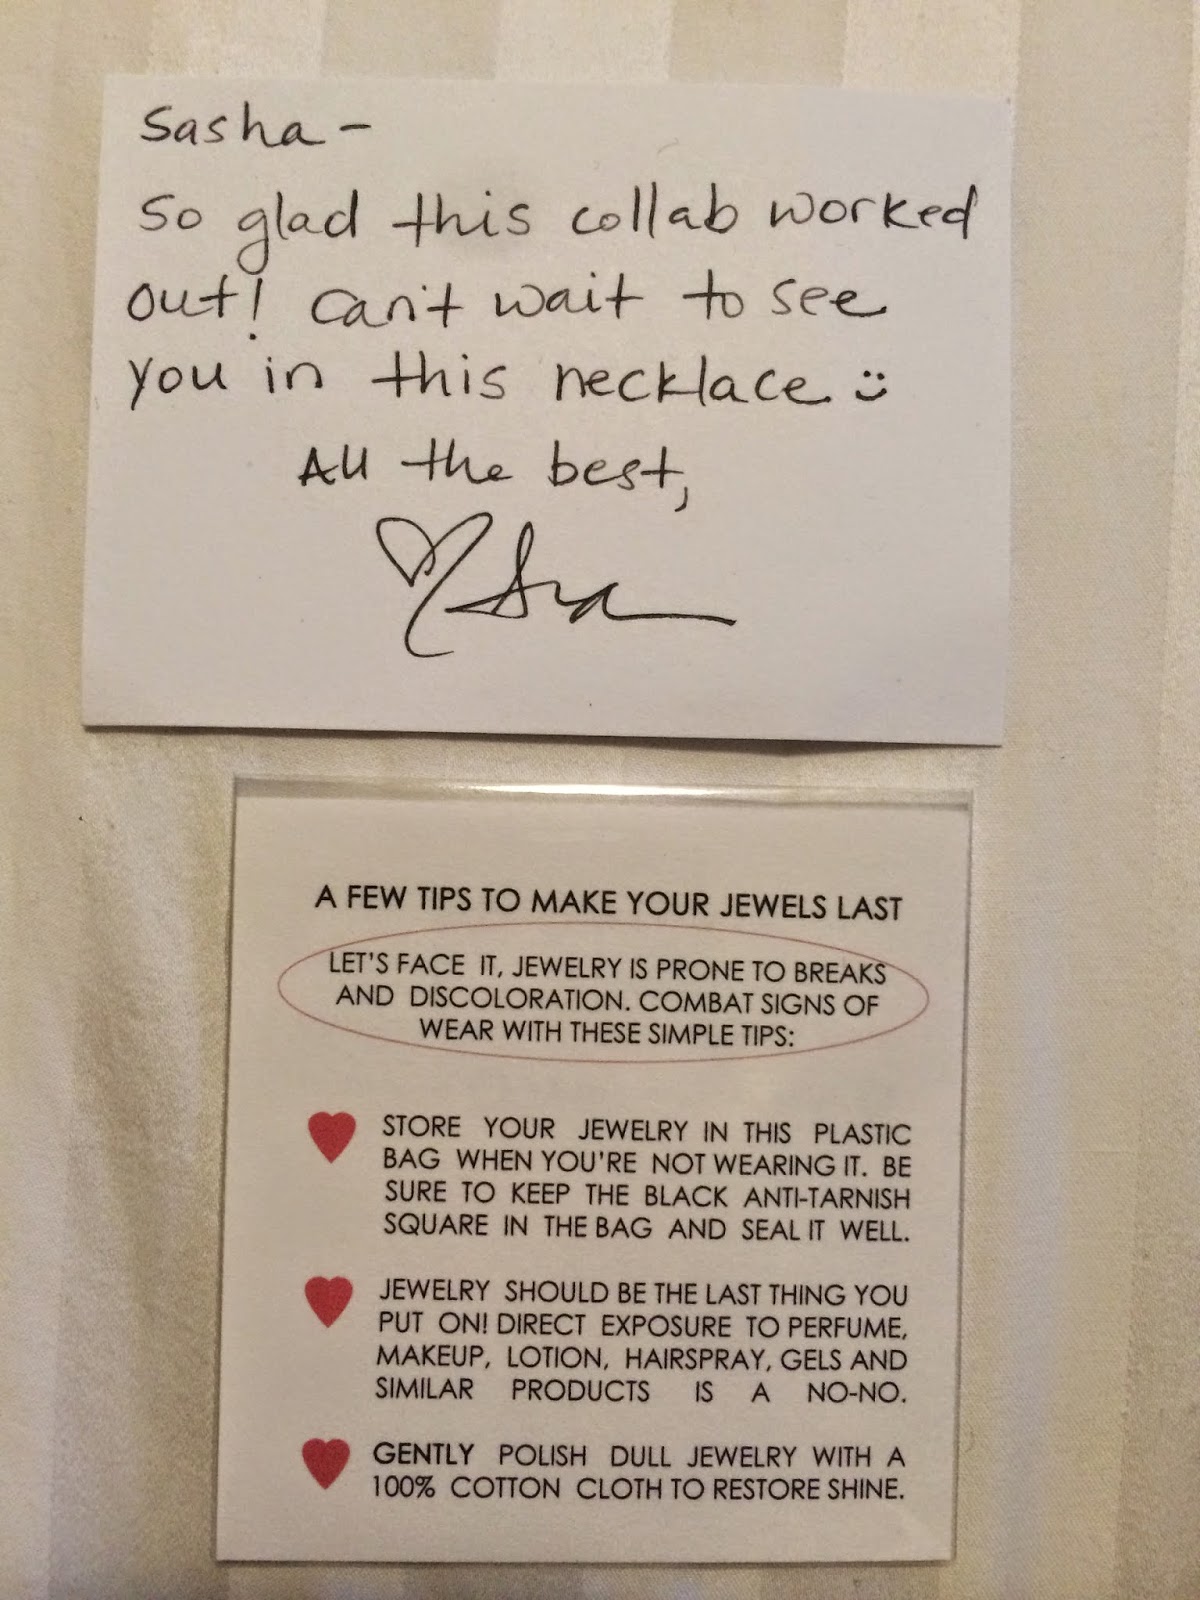 Sasha -
So glad this collab worked
out! Can't wait to see
you in this necklace :)
All the best,
A FEW TIPS TO MAKE YOUR JEWELS LAST
LET'S FACE IT, JEWELRY IS PRONE TO BREAKS
AND DISCOLORATION. COMBAT SIGNS OF
WEAR WITH THESE SIMPLE TIPS:
STORE YOUR JEWELRY IN THIS PLASTIC
BAG WHEN YOU'RE NOT WEARING IT. BE
SURE TO KEEP THE BLACK ANTI-TARNISH
SQUARE IN THE BAG AND SEAL IT WELL.
JEWELRY SHOULD BE THE LAST THING YOU
PUT ON! DIRECT EXPOSURE TO PERFUME,
MAKEUP, LOTION, HAIRSPRAY, GELS AND
SIMILAR PRODUCTS IS A NO-NO.
GENTLY POLISH DULL JEWELRY WITH A
100% COTTON CLOTH TO RESTORE SHINE.